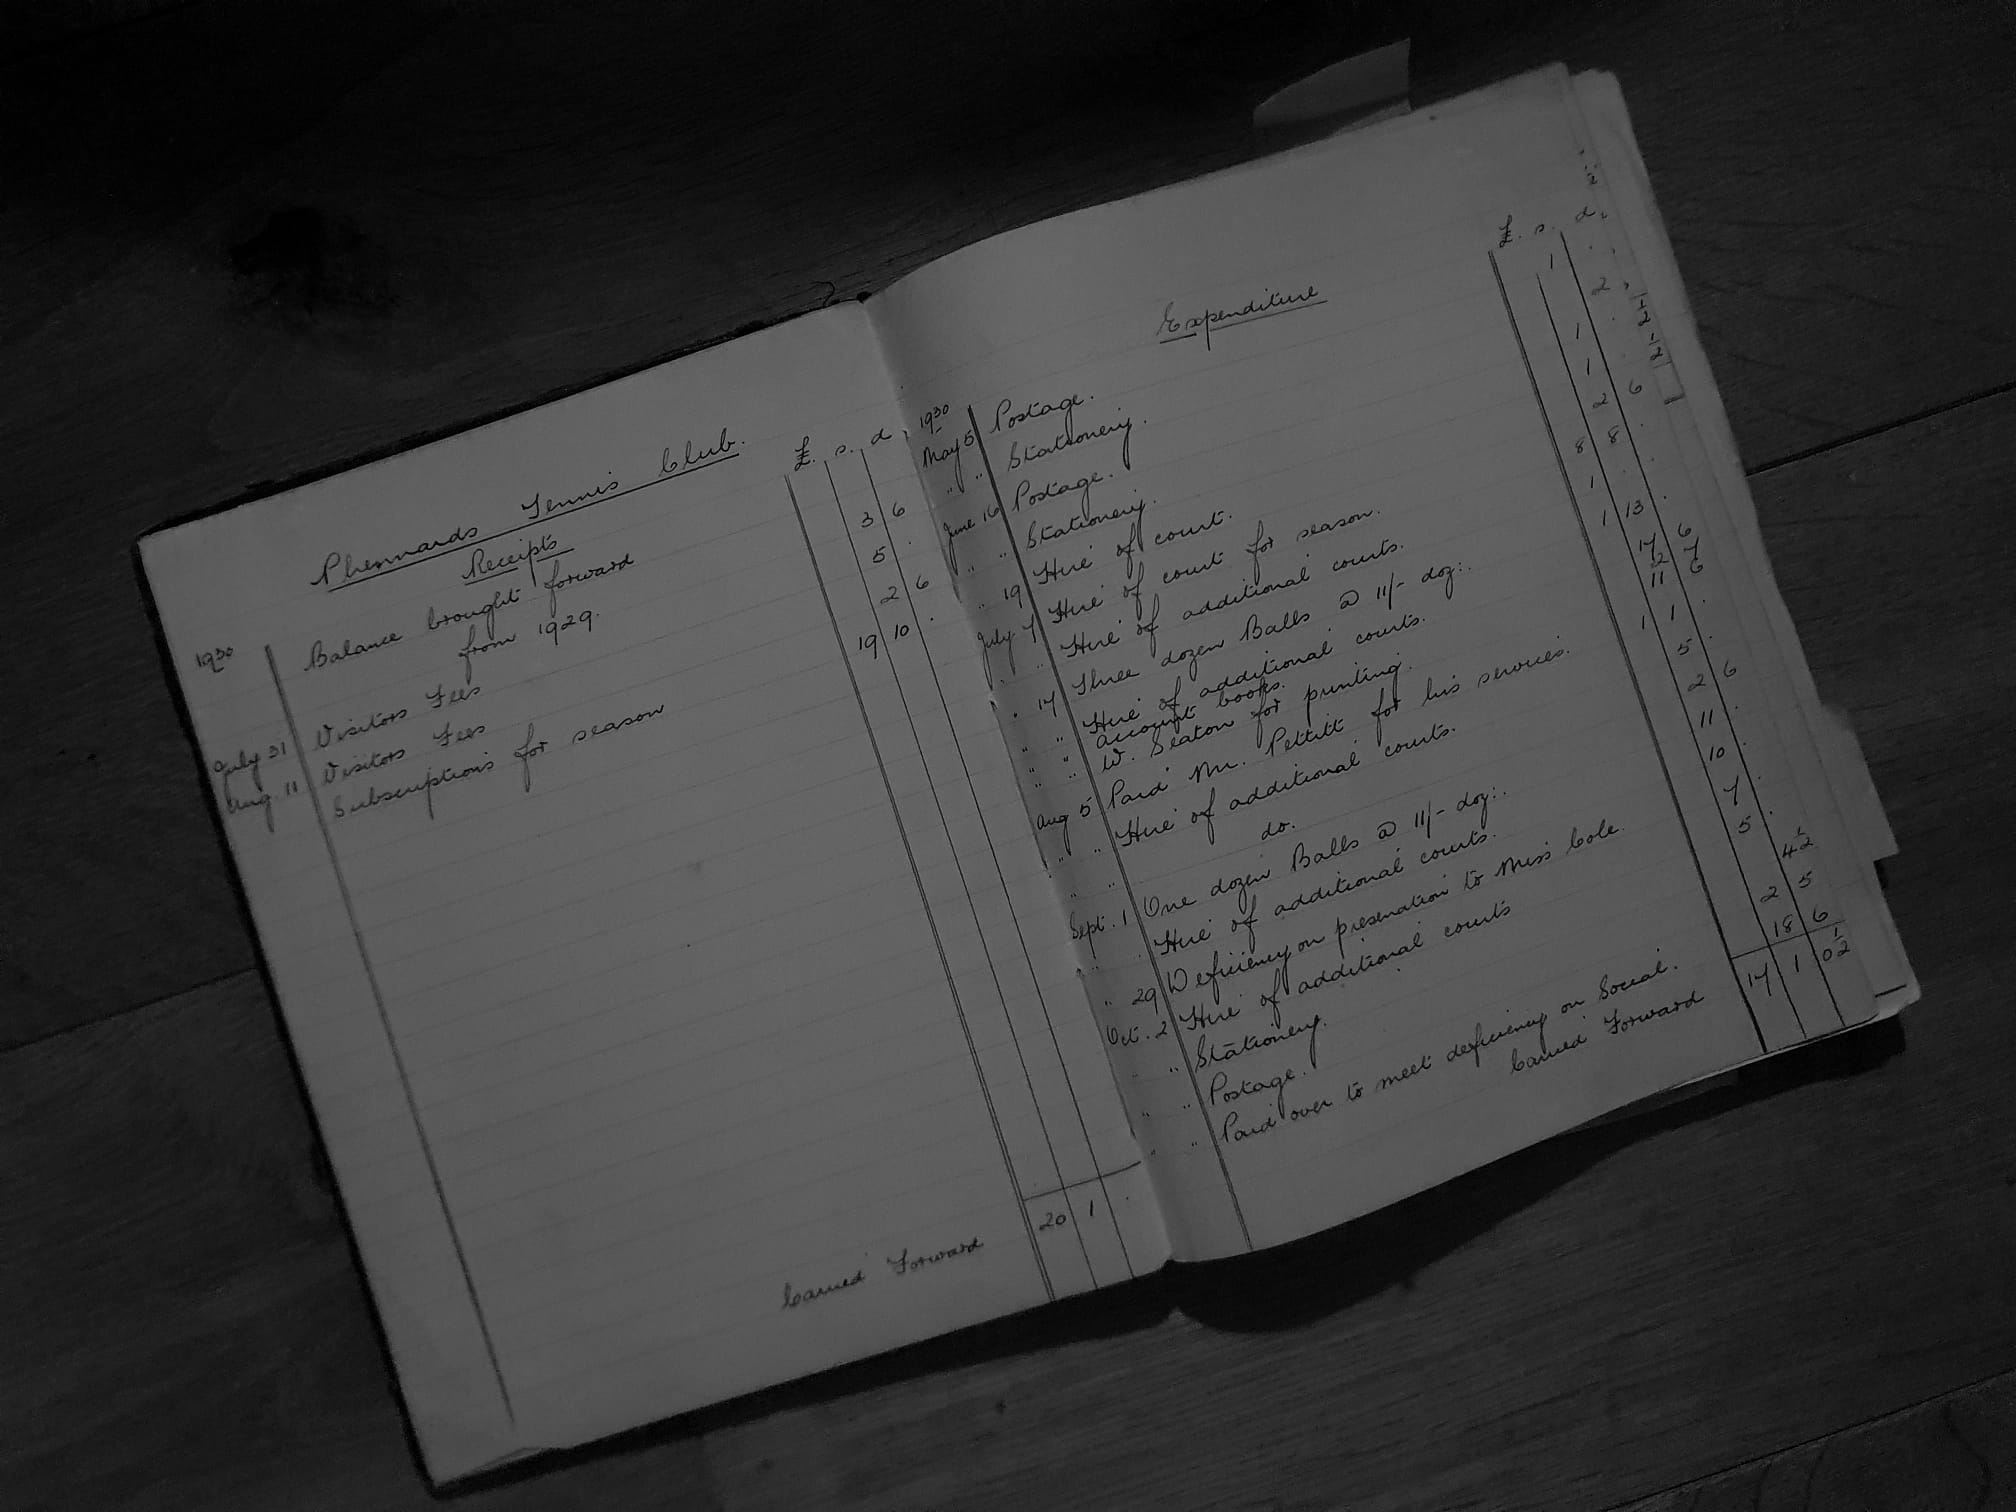 Phennards Tennis Club.
Receipts
£. s. d.
1930 Balance brought forward
from 1929. 3 6
July 31 Visitors Fees 5 .
Aug. 11 Visitors Fees 2 6
Subscriptions for season 19 10 .
Carried Forward 20 1 .
Expenditure
£. s. d.
1930
May 5 Postage. 1 .
" " Stationery. 2
June 16 Postage. 1 .
" " Stationery. 1 .
" 19 Hire of court. 2 6
July 7 Hire of court for season. 8 8 .
" Hire of additional courts. 1 . .
" 17 Three dozen Balls @ 11/- doz:. 1 13 .
" " Hire of additional courts. 17 6
" " account books. 2 7
" " W. Seaton for printing. 11 6
Aug 5 Paid Mr. Pettitt for his services. 1 1 .
" " Hire of additional courts. 5 .
" " do. 2 6
Sept. 1 One dozen Balls @ 11/- doz:. 11 .
" Hire of additional courts. 10 .
" 29 Deficiency on presenation to Miss Cole. 7 .
Oct. 2 Hire of additional courts 5 .
" Stationery. 4½
" " Postage. 2 5
" " Paid over to meet deficiency on Social. 18 6
Carried Forward 17 1 0½